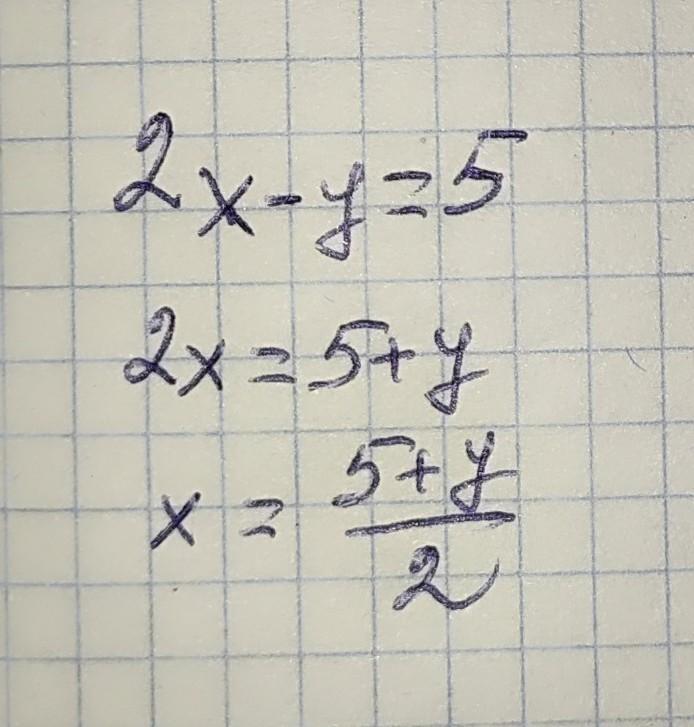 2x-y=5
2x=5+y
x=\frac{5+y}{2}